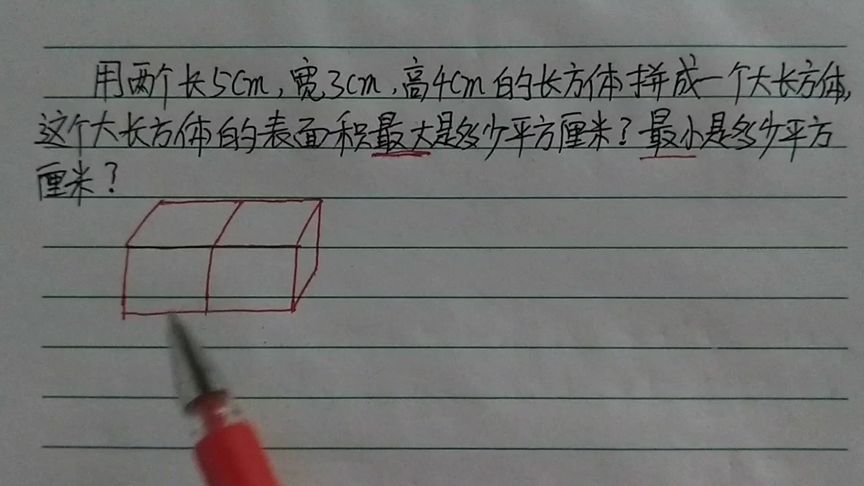 用两个长5cm,宽3cm,高4cm的长方体拼成一个大长方体,
这个大长方体的表面积最大是多少平方厘米?最小是多少平方
厘米?